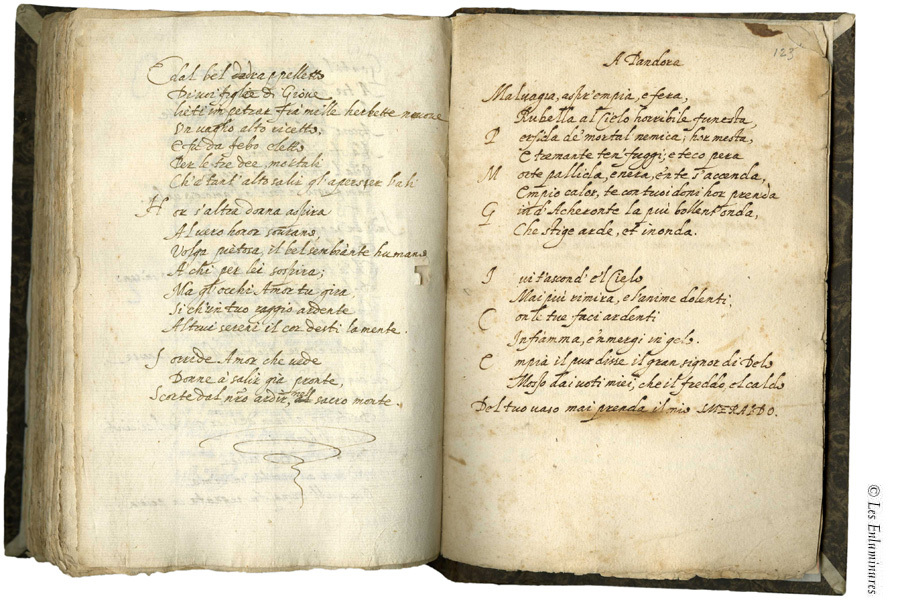 E dal bel petto
Di voi figlie di Giove
Lieti impetrar fra mille herbette nove
Un vagho alto ricetto,
E fu da febo eletto
Per le tre dee mortali
Ch'à tant'alto salir gl'aperser l'ali
Hor s'altra donna aspira
Al vero honor sourano,
Volga pietosa, il bel sembiante humano
A chi per lei sospira;
Ma gl'occhi Amor tu gira
Si ch'un tuo raggio ardente
Altrui sereni il cor desti la mente.
Sorride Amor che vede
Donne à salir già pronte,
Scorte dal nro ardir, nel sacro monte.
123
A Pandora
Malvagia, aspr'empia, e fera,
Rubella al Cielo horribile funesta
Perfida de' mortal nemica; hor mesta,
E tremante ten' fuggi; e teco pera
Morte pallida, e nera, e'n te s'accenda,
Empio calor, te con tuoi doni hor prenda
Giù d'Acheronte la più bollent'onda,
Che stige arde, et inonda.
Ivi t'ascond' e'l Cielo
Mai più rimira, e l'anime dolenti,
Con le tue faci ardenti
Infiamma, e'nmergi in gelo.
Empia il pur disse il gran signor di Delo
Mosso dai voti miei, che il freddo e'l caldo
Del tuo vaso mai prenda il mio SMERALDO.
© Les Enluminures